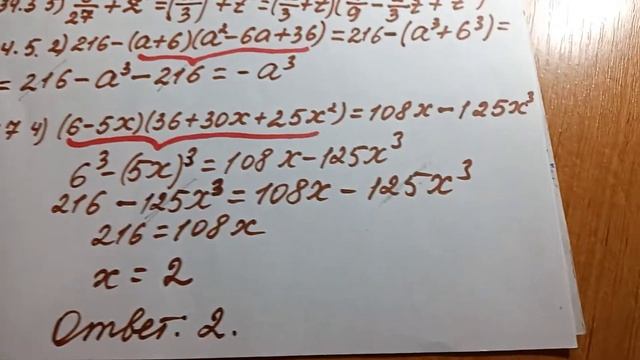 3) 8/27 + z³ = (2/3)³ + z³ = (2/3 + z)(4/9 - 2/3 z + z²)
4.5. 2) 216-(a+6)(a²-6a+36)=216-(a³+6³)=
=216-a³-216=-a³
7 4) (6-5x)(36+30x+25x²)=108x-125x³
6³-(5x)³=108x-125x³
216-125x³=108x-125x³
216=108x
x=2
Ответ: 2.